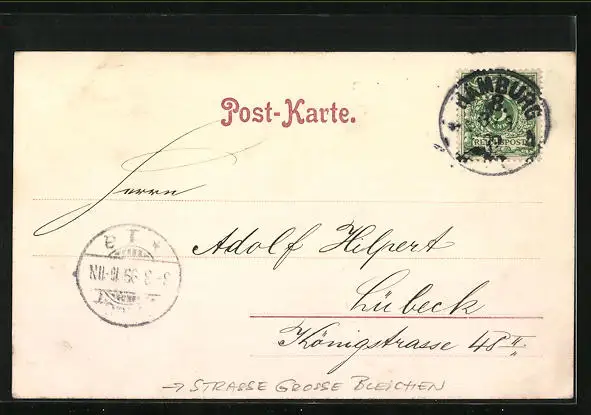 Post-Karte.
HAMBURG
REICHSPOST
Herrn
Adolf Hilpert
Lübeck
Königstrasse 48 II
→ STRASSE GROSSE BLEICHEN